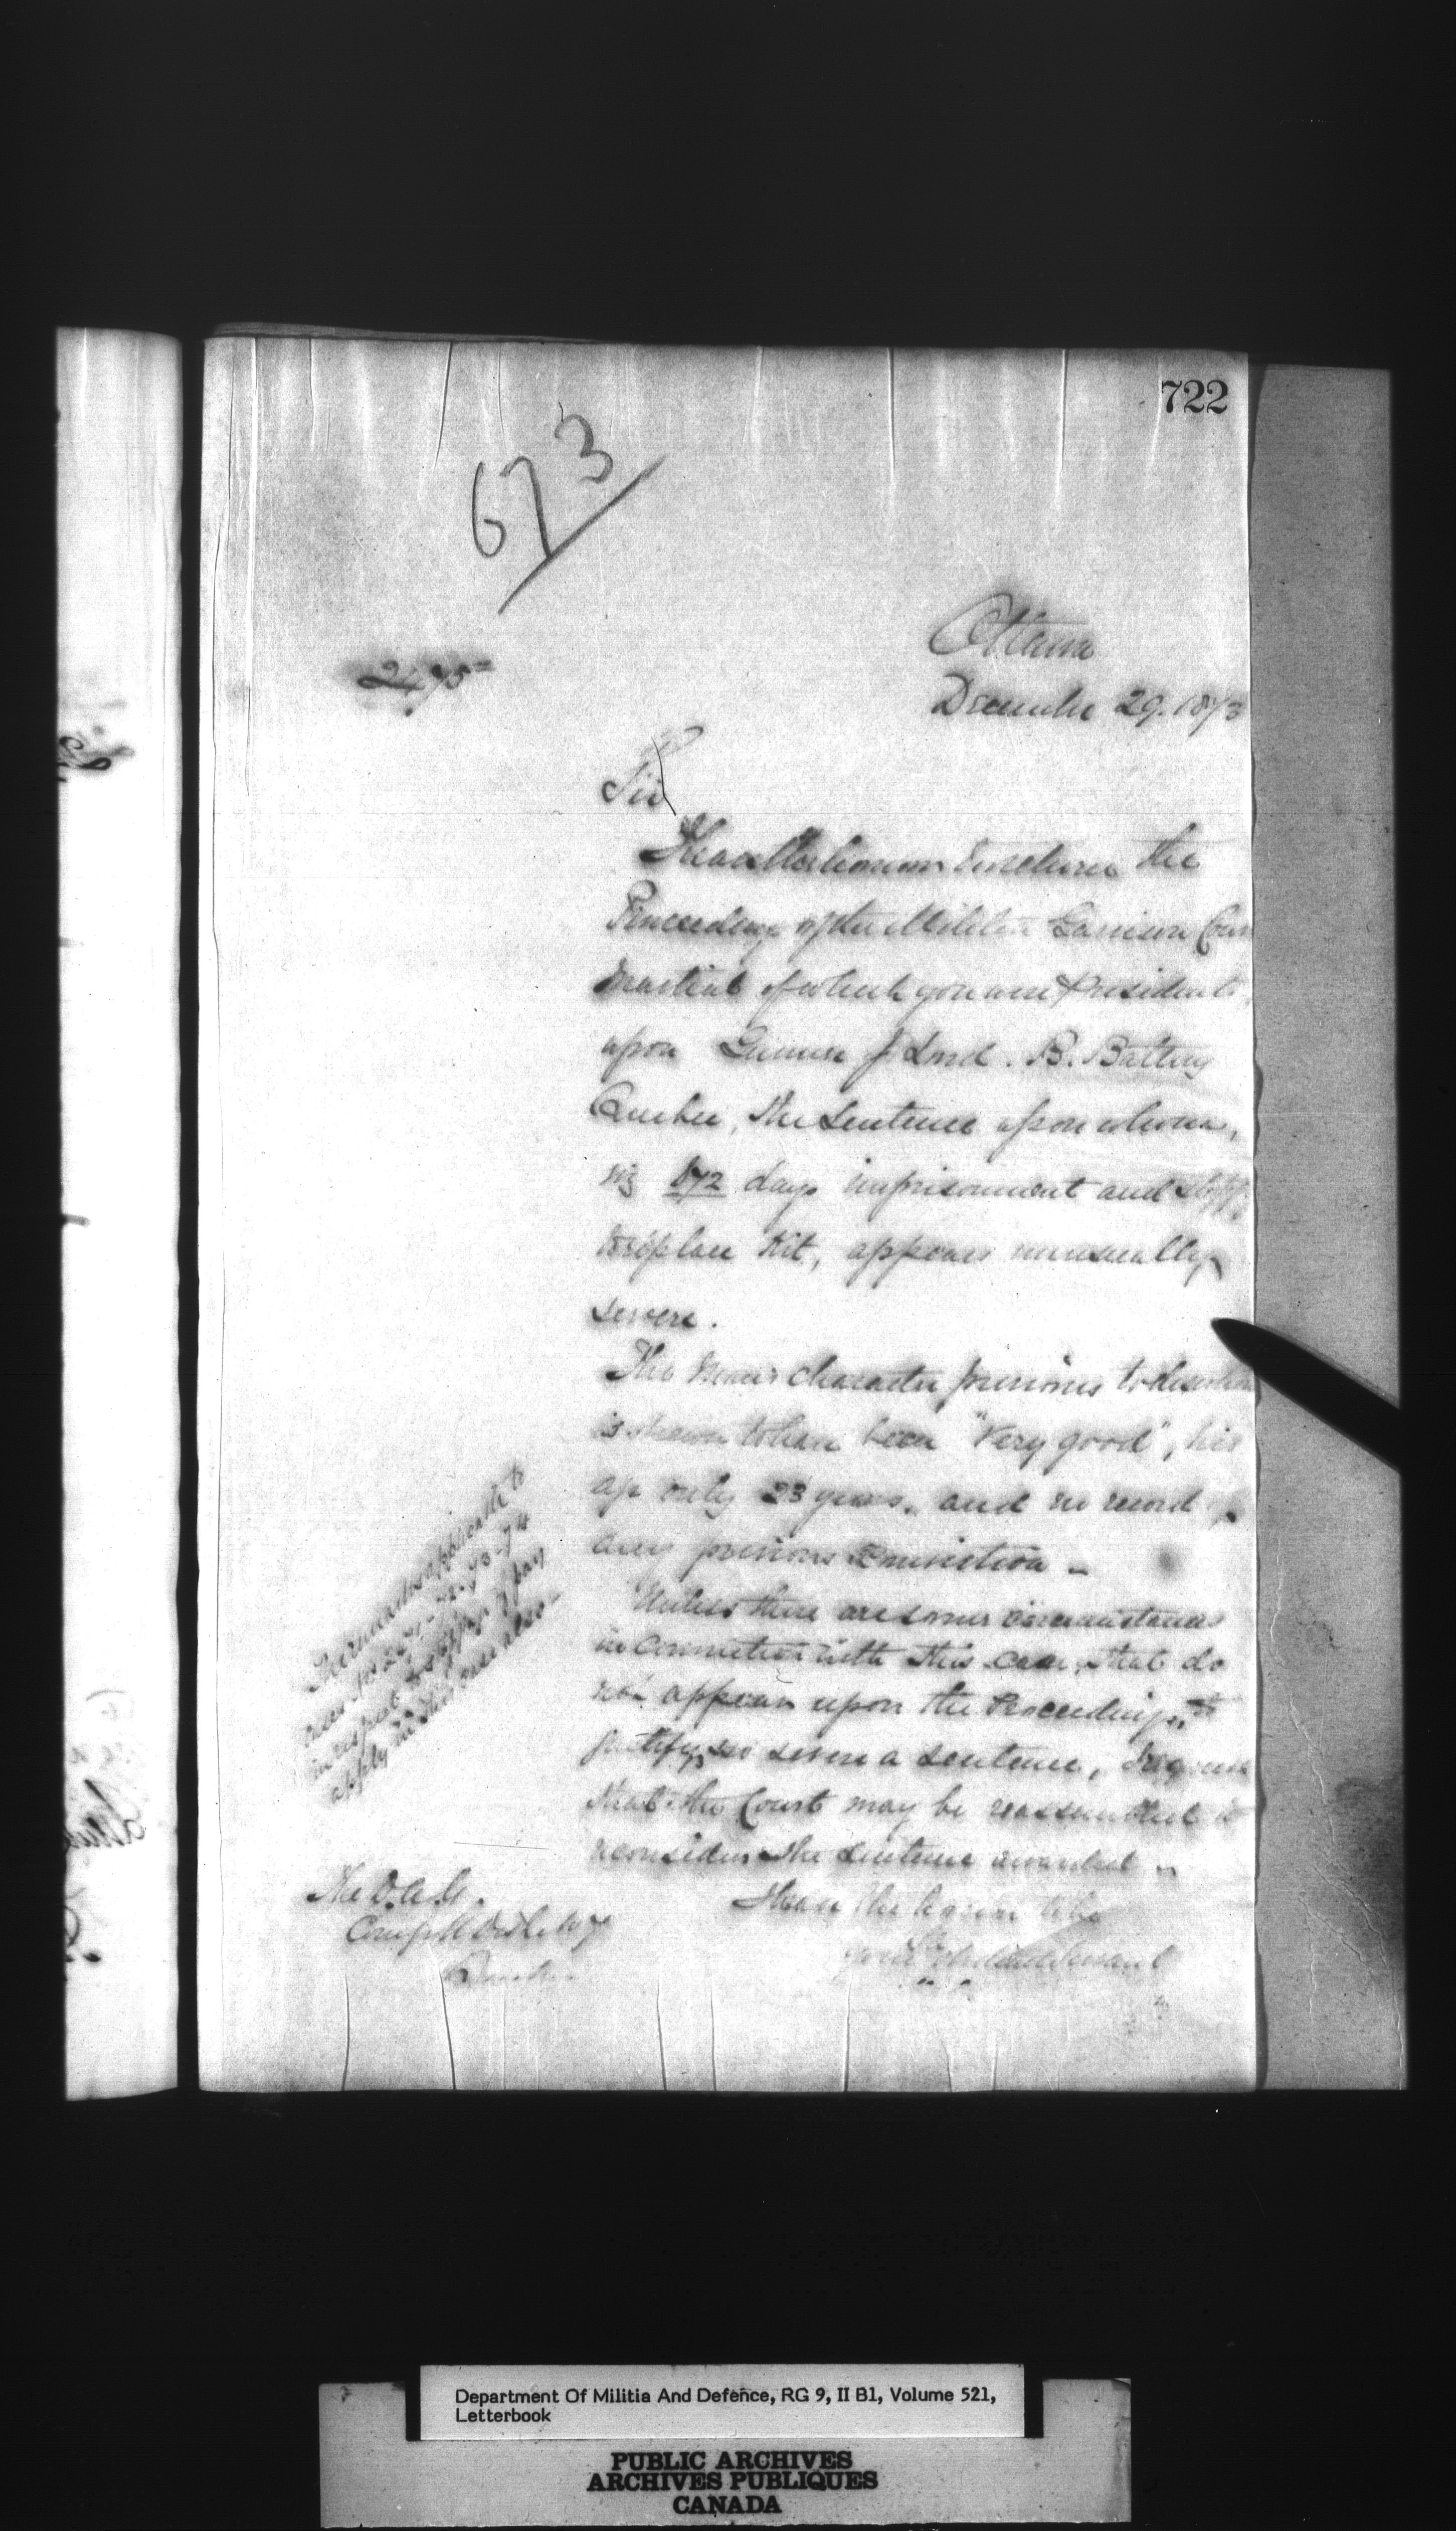 722
673
2475
Ottawa
December 29. 1873
Sir
I have the honor to return the
Proceedings of the Militia Garrison Court
Martial of which you were President,
upon Gunner J Lord. B. Battery
Quebec, the sentence upon whom,
viz 172 days imprisonment and stopp.
to replace Kit, appears unusually
severe.
The Man's character previous to desertion
is shewn to have been "Very good", his
age only 23 years, and no record of
any previous conviction -
Unless there are some circumstances
in connection with this case, that do
not appear upon the Proceedings, to
justify so severe a sentence, I request
that the Court may be reassembled to
reconsider the sentence awarded -
I have the honor to be
Your Obedient Servant
The D.A.G.
Comg
The remarks applicable to
cases Nos 72. 73. 74
in respect to stoppage of pay
apply in this case also -
Department Of Militia And Defence, RG 9, II B1, Volume 521,
Letterbook
PUBLIC ARCHIVES
ARCHIVES PUBLIQUES
CANADA